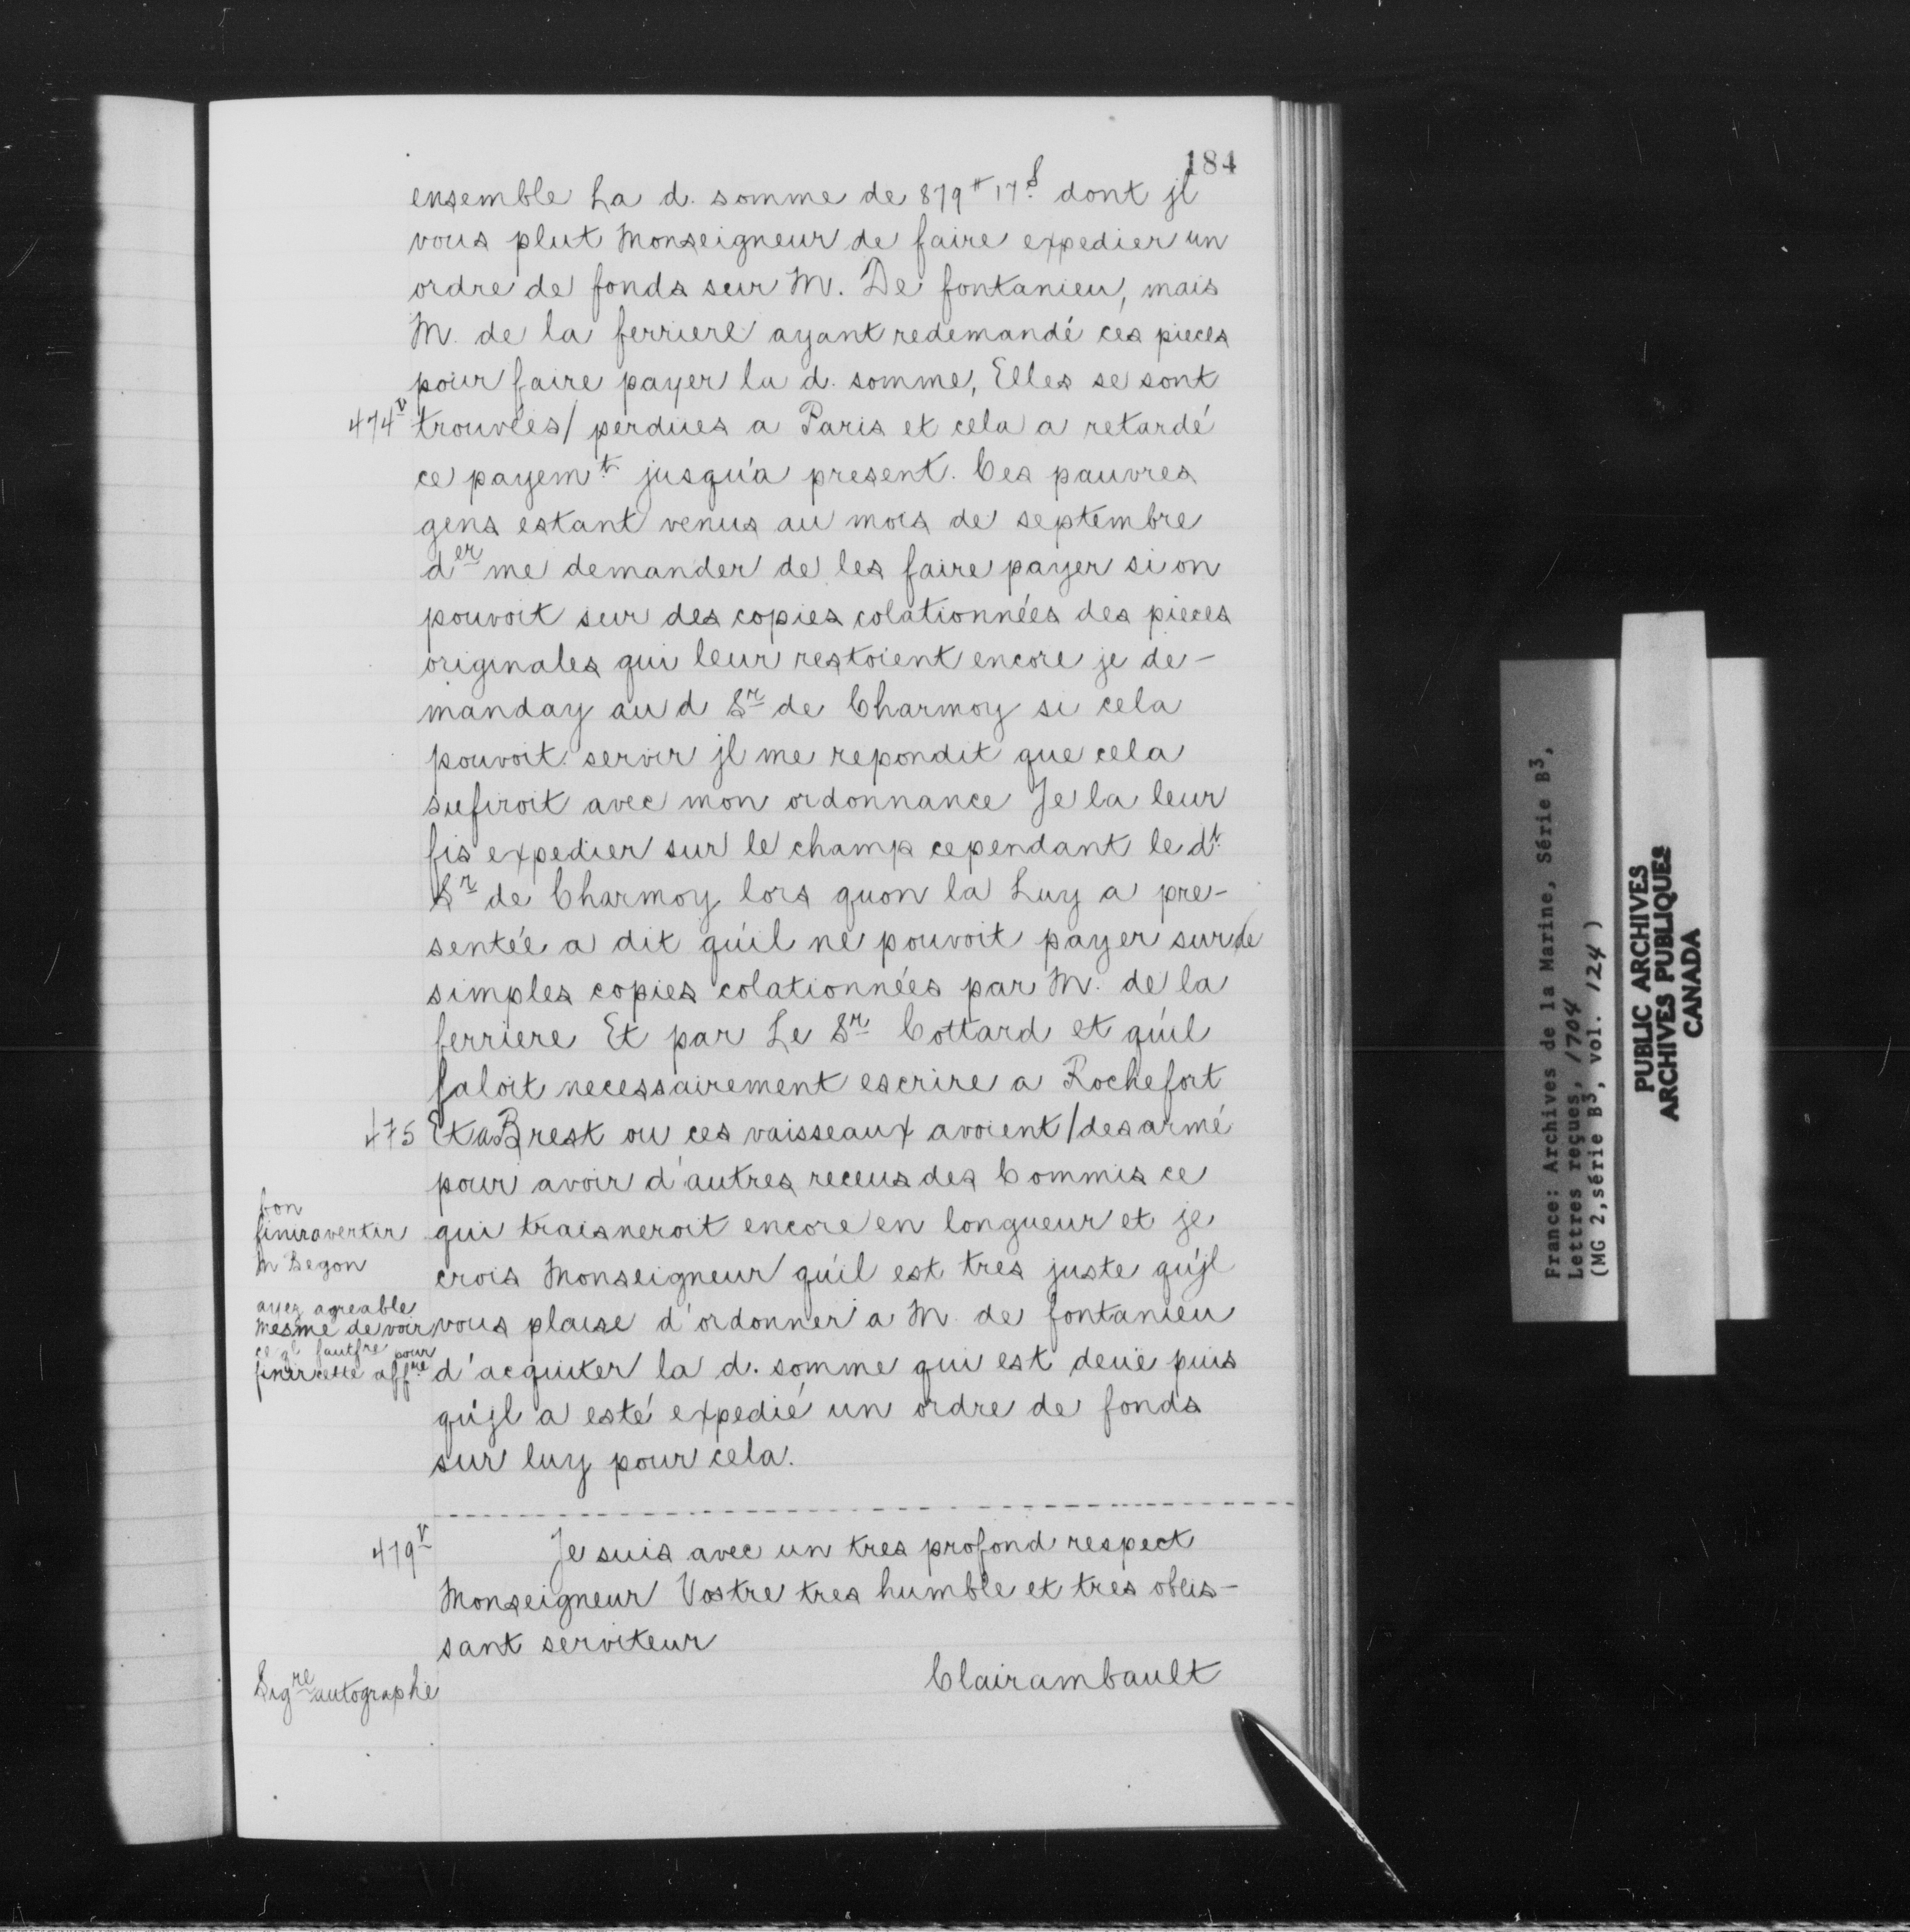 184
ensemble La d. somme de 879# 17s dont jl
vous plut Monseigneur de faire expedier un
ordre de fonds sur M. De fontanieu, mais
M. de la ferriere ayant redemandé ces pieces
pour faire payer la d. somme, Elles se sont
474v trouvées/ perdues a Paris et cela a retardé
ce payemt jusqu'a present. Ces pauvres
gens estant venus au mois de septembre
der me demander de les faire payer si on
pouvoit sur des copies colationnées des pieces
originales qui leur restoient encore je de-
manday au d Sr de Charmoy si cela
pouvoit servir jl me repondit que cela
sufiroit avec mon ordonnance Je la leur
fis expedier sur le champ cependant le dt.
Sr de Charmoy lors quon la Luy a pre-
sentée a dit qu'il ne pouvoit payer sur de
simples copies colationnées par M. de la
ferriere Et par Le Sr Cottard et qu'il
faloit necessairement escrire a Rochefort
475 Et a Brest ou ces vaisseaux avoient/desarmé
pour avoir d'autres receus des Commis ce
qui traisneroit encore en longueur et je
crois Monseigneur qu'il est tres juste qu'jl
vous plaise d'ordonner a M. de fontanieu
d'acquiter la d. somme qui est deüe puis
qu'jl a esté expedié un ordre de fonds
sur luy pour cela.
bon
avertir
M Begon
ayez agreable
mesme de voir
ce pour
finir cette affre
479v Je suis avec un tres profond respect
Monseigneur Vostre tres humble et tres obeis-
sant serviteur
Clairambault
Sigre autographe
France: Archives de la Marine, Série B3,
Lettres reçues, 1704
(MG 2, série B3, vol. 124 )
PUBLIC ARCHIVES
ARCHIVES PUBLIQUES
CANADA